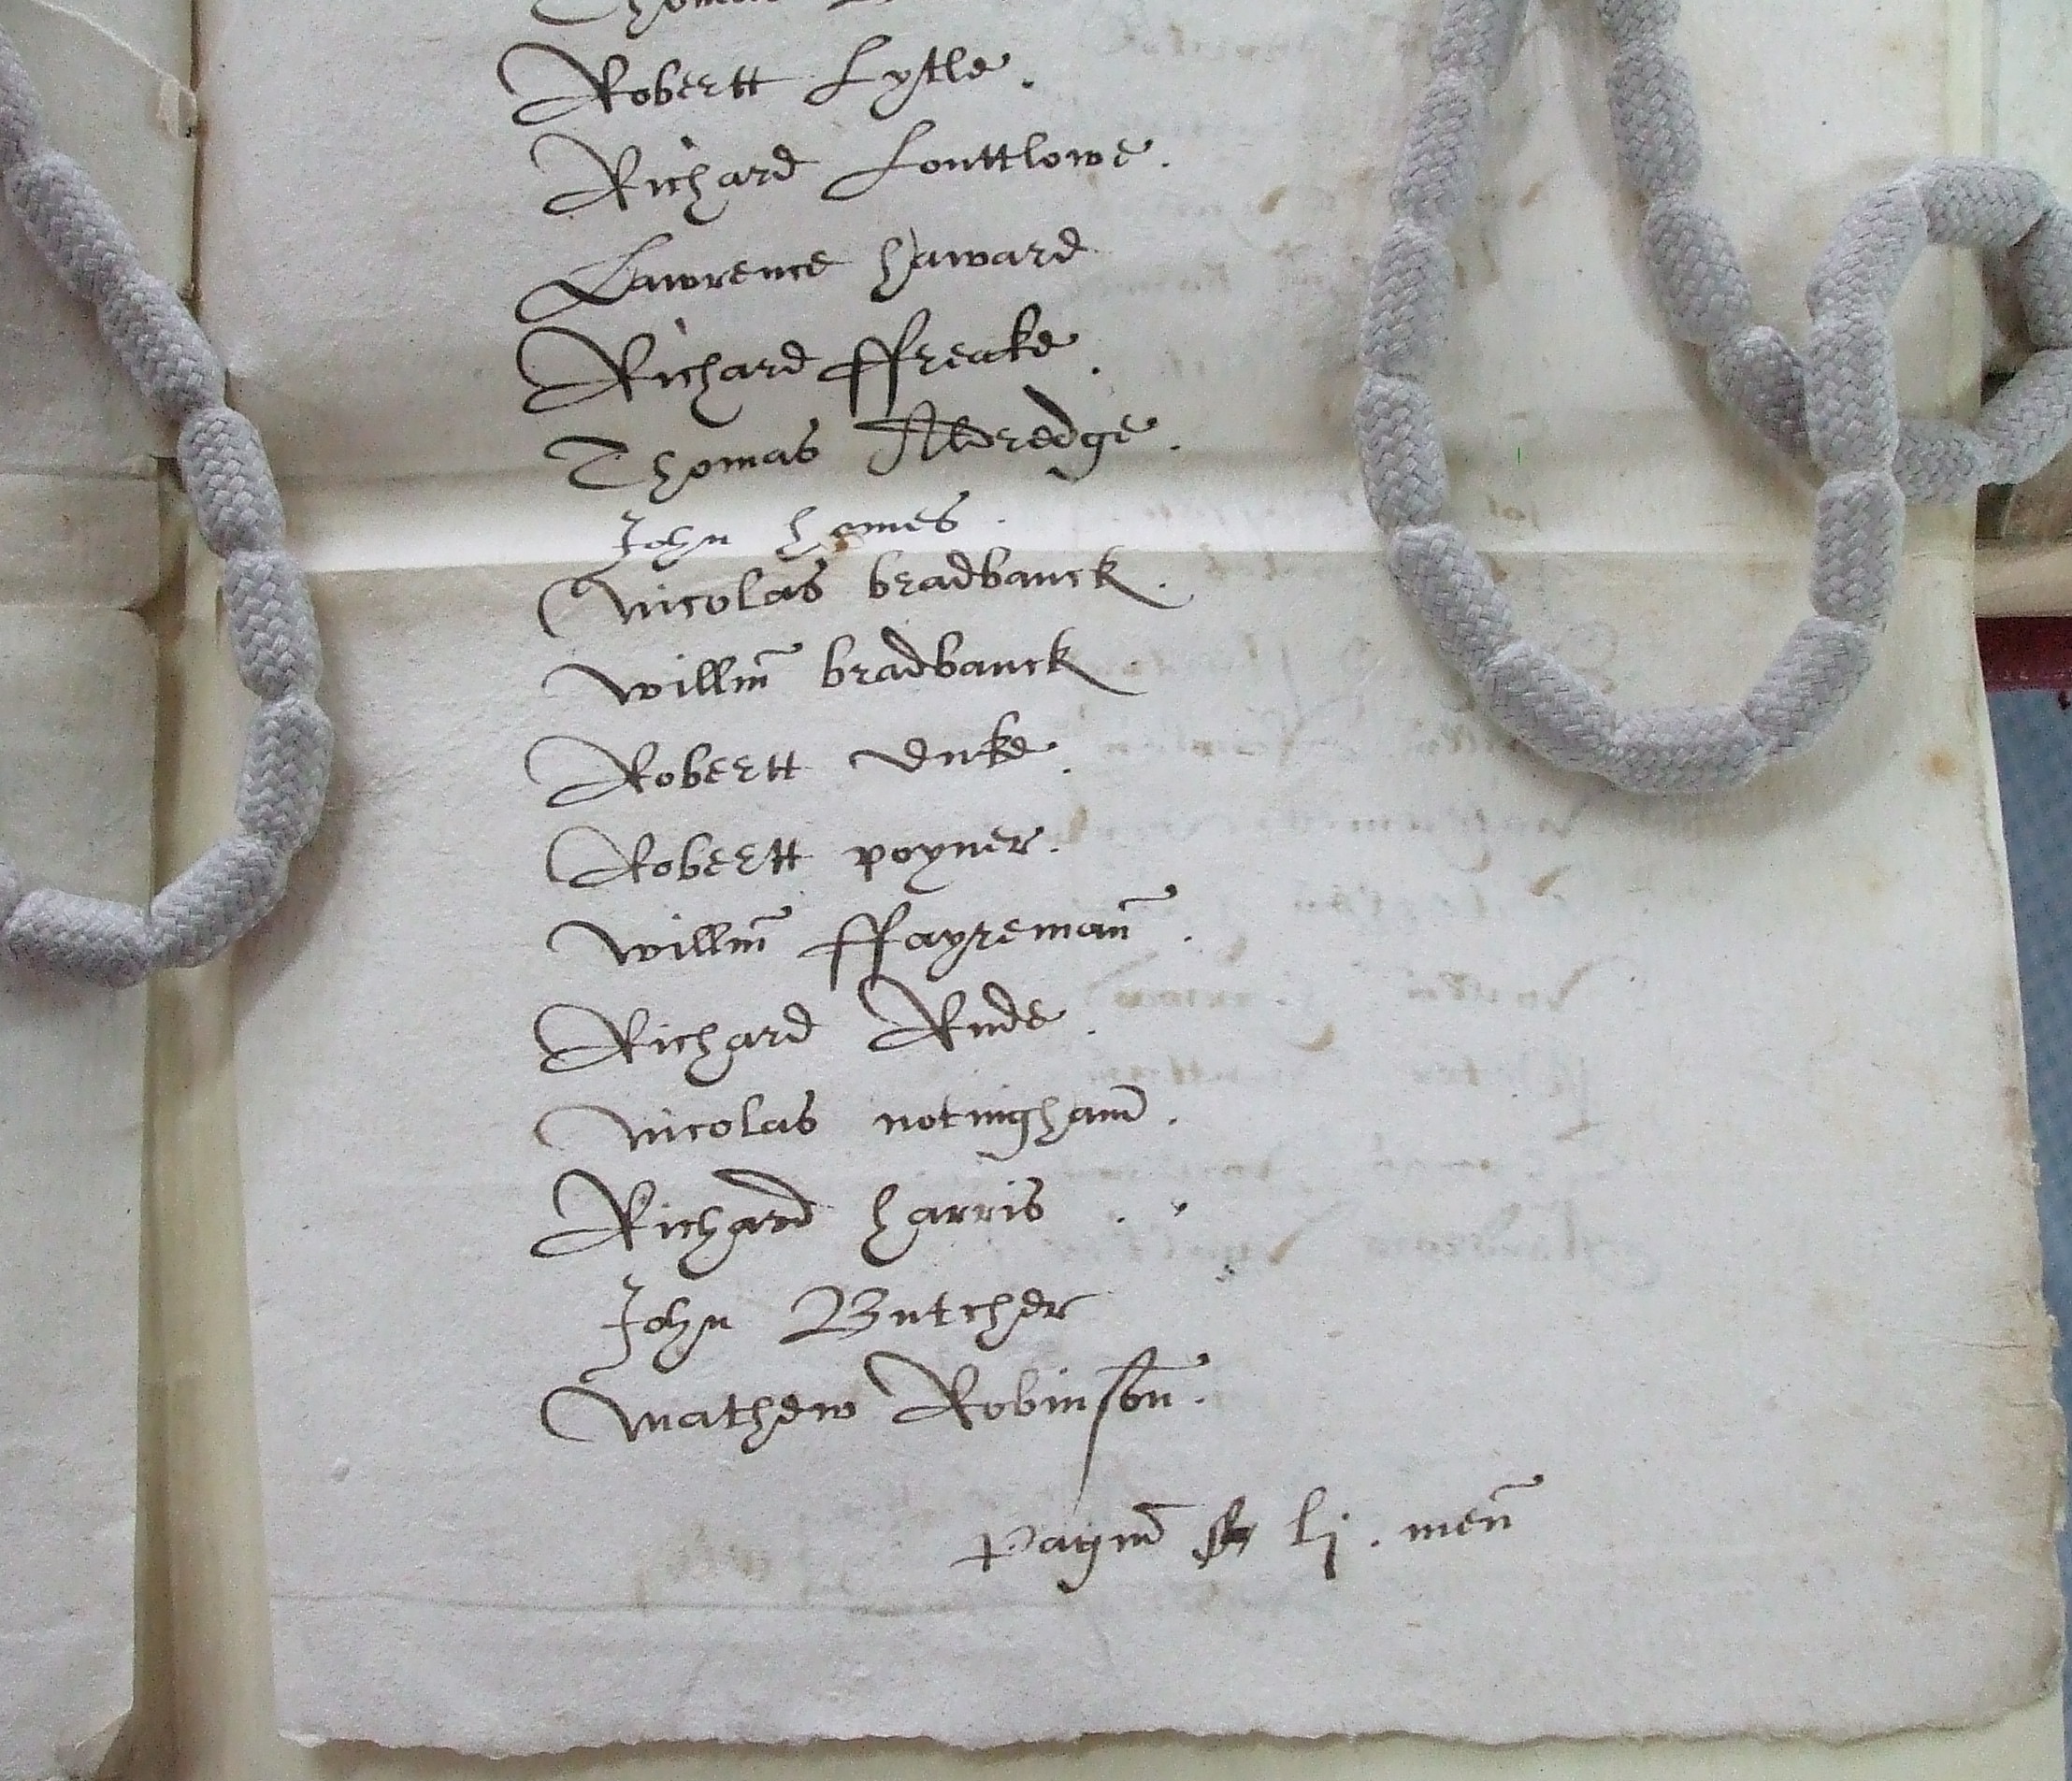 Robertt Lytle.
Richard Louttlowe.
Lawrence haward
Richard ffreake.
Thomas Aldredge.
John homes.
Nicolas bradbanck.
Willm̃ bradbanck
Robertt duke.
Robertt poyner.
Willm̃ ffayremañ.
Richard Rude.
Nicolas notingham̃.
Richard harris.
John Butcher
Mathew Robinsoñ.
lj. meñ